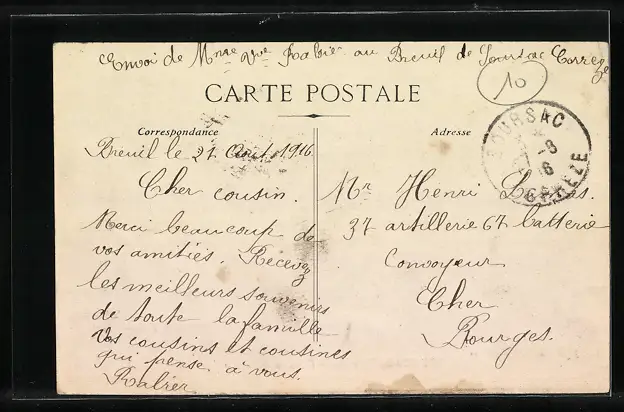 Envoi de Mme Vve Rabier au Breuil de Soursac Corrèze
10
CARTE POSTALE
Correspondance
Adresse
SOURSAC
CORRÈZE
Breuil le 21 Aout 1916
Cher cousin.
Merci beaucoup de
vos amitiés. Recevez
les meilleurs souvenirs
de toute la famille
Vos cousins et cousines
qui pense à vous.
Rabier
Mr Henri
37 artillerie 67 batterie
Convoyeur
Cher
Bourges.